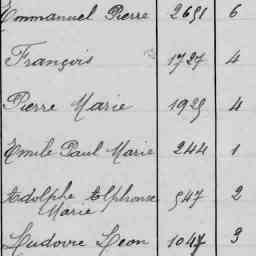 Emmanuel Pierre 2651 6
François 1727 4
Pierre Marie 1925 4
Emile Paul Marie 244 1
Adolphe Alphonse 547 2
Marie
Ludovic Léon 1047 3